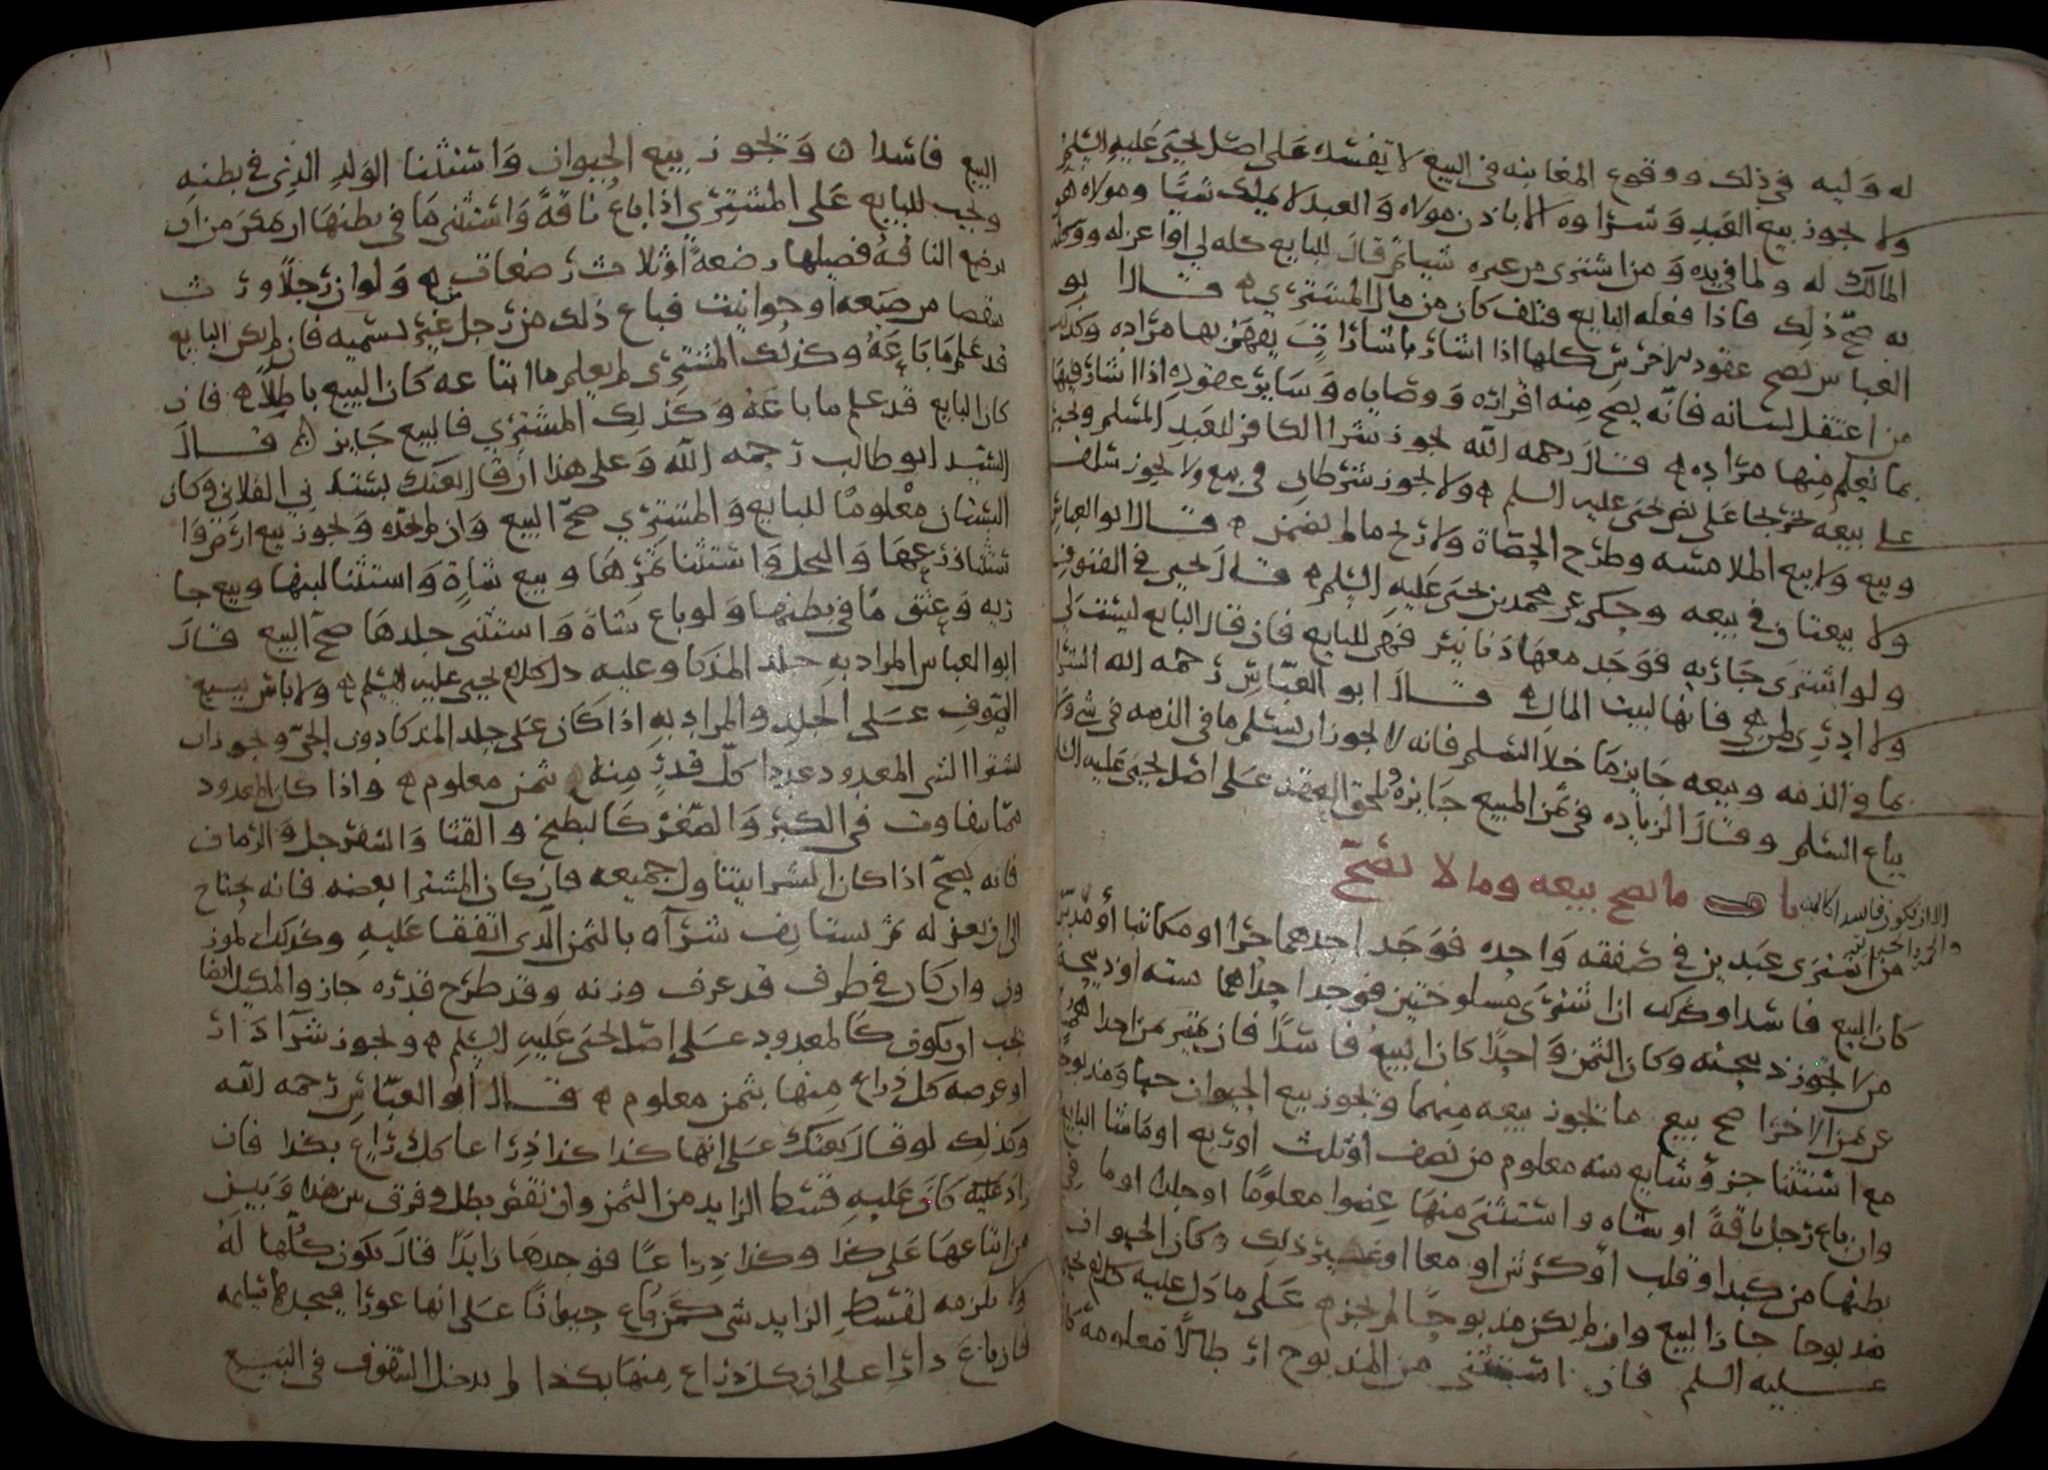 له وليه في ذلك ووقوع المغابنه في البيع لا يفسده على اصل يحيى عليه السلم
ولا يجوز بيع العبد وشراوه الا باذن مولاه والعبد لا يملك شيا ومولاه هو
المالك له ولما في يده ومن اشترى من غيره شيا ثم قال للبايع كله لي او اعزله ووكله
به صح ذلك فاذا فعله البايع فتلف كان من مال المشتري قال ابو
العباس تصح عقود الاخرس كلها اذا اشار اشاراة يفهم بها مراده وكذلك
من اعتقل لسانه فانه يصح منه اقراره ووصاياه وساير عقوده اذا اشار فيها
بما يعلم منها مراده قال رحمه الله يجوز شرا الكافر للعبد المسلم ويجبر
على بيعه تخريجا على نص يحيى عليه السلم ولا يجوز شرطان في بيع ولا يجوز سلف
وبيع ولا بيع الملامسه وطرح الحصاة ولا ربح ما لم يضمن قال ابو العباس
ولا بيعتان في بيعه وحكى عن محمد بن يحيى عليه السلم قال يحيى في الفنون
ولو اشترى جاريه فوجد معها دنانير فهي للبايع فان قال البايع ليست لي
ولا ادري لمن هي فانها لبيت المال قال ابو العباس رحمه الله الشرا
بما في الذمه وبيعه جايز ما خلا السلم فانه لا يجوز ان يسلم ما في الذمه في شي ولا
يباع السلم وقال الزياده في ثمن المبيع جايزه وتلحق العقد على اصل يحيى عليه السلم
باب ما يصح بيعه وما لا يصح
الا ان تكون فاسدا كالميته
والحر
من اشترى عبدين في صفقه واحده فوجد احدهما حرا او مكاتبا او مدبرا
كان البيع فاسدا وكذلك ان اشترى مسلوختين فوجد احداهما ميته او ذبيحة
من لا يجوز ذبيحته وكان الثمن واحدا كان البيع فاسدا فان تميز ثمن احداهما
عن ثمن الاخرا صح بيع ما يجوز بيعه منهما ويجوز بيع الحيوان حيا ومذبوحا
مع استثنا جزؤ شايع منه معلوم من نصف او ثلث او ربع او ما شا البايع
وان باع رجل ناقة او شاه واستثنى منها عضوا معلوما او جلدا او ما في
بطنها من كبد او قلب او كرش او معا او غير ذلك وكان الحيوان
مذبوحا جاز البيع وان لم يكن مذبوحا لم يجز على ما دل عليه كلام يحيى
عليه السلم فان استثنى من المذبوح ارطالا معلومه كان
البيع فاسدا ويجوز بيع الحيوان واستثنا الولد الذي في بطنه
ويجب للبايع على المشتري اذا باع ناقة واستثنى ما في بطنها ان يمكن من ان
ترضع الناقه فصيلها رضعة او ثلاث رضعات ولو ان رجلا ورث
شقصا من ضيعه او حوانيت فباع ذلك من رجل غير تسميه فان لم يكن البايع
قد علم ما باعه وكذلك المشتري لم يعلم ما ابتاعه كان البيع باطلا فان
كان البايع قد علم ما باعه وكذلك المشتري فالبيع جايز قال
السيد ابو طالب رحمه الله وعلى هذا ان قال بعتك بستاني الفلاني وكان
البستان معلوما للبايع والمشتري صح البيع وان لم يحده ويجوز بيع ارض واستثنا
زرعها والنحل واستثنا ثمرها وبيع شاة واستثنا لبنها وبيع جا
ريه وعتق ما في بطنها ولو باع شاة واستثنى جلدها صح البيع قال
ابو العباس المراد به جلد المذكا وعليه دل كلام يحيى عليه السلم ولا باس ببيع
الصوف على الجلد والمراد به اذا كان على جلد المذكا دون الحي ويجوز ان
يشترا الشي المعدود عددا كل قدر منه بثمن معلوم واذا كان المعدود
مما يتفاوت في الكبر والصغر كالبطيخ والقثا والسفرجل والرمان
فانه يصح اذا كان الشرا يتناول جميعه فان كان المشترا بعضه فانه يحتاج
الى ان يعزله ثم يستانف شرآه بالثمن الذي اتفقا عليه وكذلك الموز
ون وان كان في ظرف قد عرف وزنه وقد طرح قدره جاز والمكيل ايضا
يجب ان يكون كالمعدود على اصل يحيى عليه السلم ويجوز شرآ دار
او عرصه كل ذراع منها بثمن معلوم قال ابو العباس رحمه الله
وكذلك لو قال بعتك على انها كذا كذا ذراعا كل ذراع بكذا فان
زاد عليه كان عليه قسط الزايد من الثمن وان نقص بطل وفرق بين هذا وبين
من ابتاعها على كذا وكذا ذراعا فوجدها زايدا قال تكون كلها له
ولا يلزمه لقسط الزايد شي كمن باع حيوانا على انها عورا فيجدها سليمه
فان باع دارا على ان كل ذراع منها بكذا لم يدخل السقوف في البيع